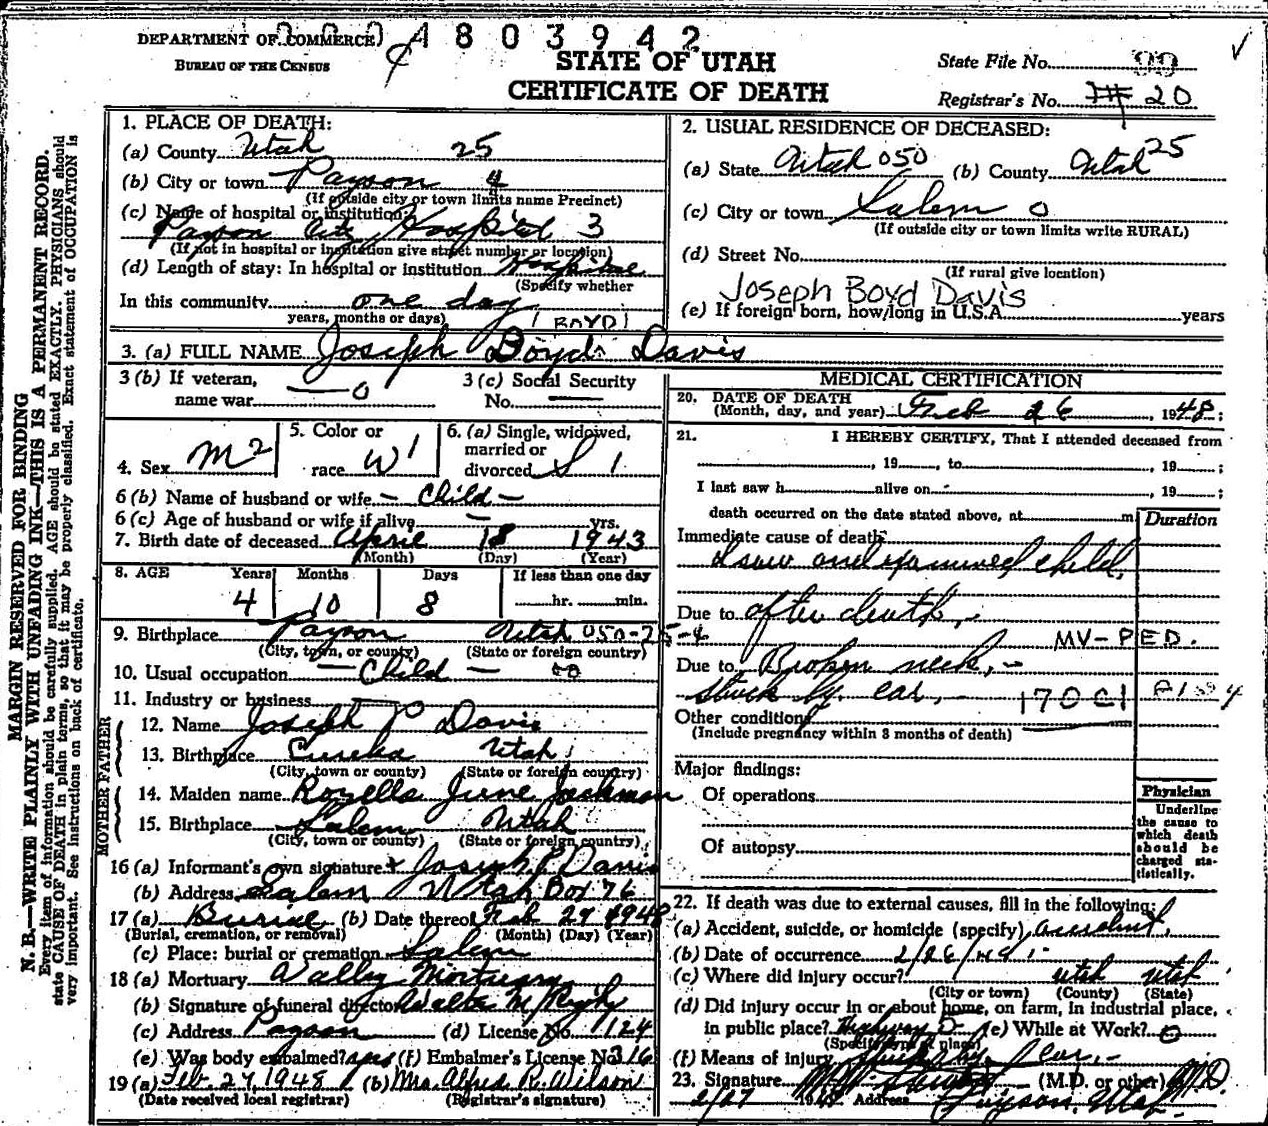 0004803942
DEPARTMENT OF COMMERCE
BUREAU OF THE CENSUS
STATE OF UTAH
CERTIFICATE OF DEATH
State File No. 99
Registrar's No. 20
MARGIN RESERVED FOR BINDING
N. B.—WRITE PLAINLY WITH UNFADING INK—THIS IS A PERMANENT RECORD.
Every item of information should be carefully supplied. AGE should be stated EXACTLY. PHYSICIANS should
state CAUSE OF DEATH in plain terms, so that it may be properly classified. Exact statement of OCCUPATION is
very important. See instructions on back of certificate.
1. PLACE OF DEATH:
(a) County Utah 25
(b) City or town Payson 4
(If outside city or town limits name Precinct)
(c) Name of hospital or institution:
Payson City Hospital 3
(If not in hospital or institution give street number or location)
(d) Length of stay: In hospital or institution
(Specify whether
In this community one day
years, months or days)
2. USUAL RESIDENCE OF DECEASED:
(a) State Utah 050 (b) County Utah 25
(c) City or town Salem 0
(If outside city or town limits write RURAL)
(d) Street No.
(If rural give location)
Joseph Boyd Davis
(e) If foreign born, how long in U.S.A. years
(BOYD)
3. (a) FULL NAME Joseph Boyd Davis
3 (b) If veteran, name war 0
3 (c) Social Security No. —
4. Sex M 2
5. Color or race W 1
6. (a) Single, widowed, married or divorced S 1
6 (b) Name of husband or wife — Child —
6 (c) Age of husband or wife if alive — yrs.
7. Birth date of deceased April 18 1943
(Month) (Day) (Year)
8. AGE Years Months Days If less than one day
4 10 8 hr. min.
9. Birthplace Payson Utah 050-25-4
(City, town, or county) (State or foreign country)
10. Usual occupation — Child —
11. Industry or business
FATHER
12. Name Joseph P Davis
13. Birthplace Eureka Utah
(City, town or county) (State or foreign country)
MOTHER
14. Maiden name Rozella June Jackman
15. Birthplace Salem Utah
(City, town or county) (State or foreign country)
16 (a) Informant's own signature x Joseph P. Davis
(b) Address Salem Utah Box 76
17 (a) Burial (b) Date thereof Feb 29 1948
(Burial, cremation, or removal) (Month) (Day) (Year)
(c) Place: burial or cremation Salem
18 (a) Mortuary Valley Mortuary
(b) Signature of funeral director Walter M
(c) Address Payson (d) License No. 124
(e) Was body embalmed? yes (f) Embalmer's License No. 316
19 (a) Feb. 27, 1948 (b) Mrs. Alfred R. Wilson
(Date received local registrar) (Registrar's signature)
MEDICAL CERTIFICATION
20. DATE OF DEATH
(Month, day, and year) Feb 26, 1948;
21. I HEREBY CERTIFY, That I attended deceased from
, 19 , to , 19 ;
I last saw h alive on , 19 ;
death occurred on the date stated above, at m
Duration
Immediate cause of death
I saw and examined child,
Due to after death, -
MV-PED.
Due to Broken neck, -
struck by car, - 170C1
Other conditions
(Include pregnancy within 3 months of death)
Major findings:
Of operations
Of autopsy
Physician
Underline
the cause to
which death
should be
charged sta-
tistically.
22. If death was due to external causes, fill in the following:
(a) Accident, suicide, or homicide (specify) accident
(b) Date of occurrence 2/26/48
(c) Where did injury occur? Utah Utah
(City or town) (County) (State)
(d) Did injury occur in or about home, on farm, in industrial place,
in public place? Highway (e) While at Work? 0
(Specify type of place)
(f) Means of injury struck by car. -
23. Signature (M.D. or other) M.D.
2/27 1948 Address Payson, Utah.